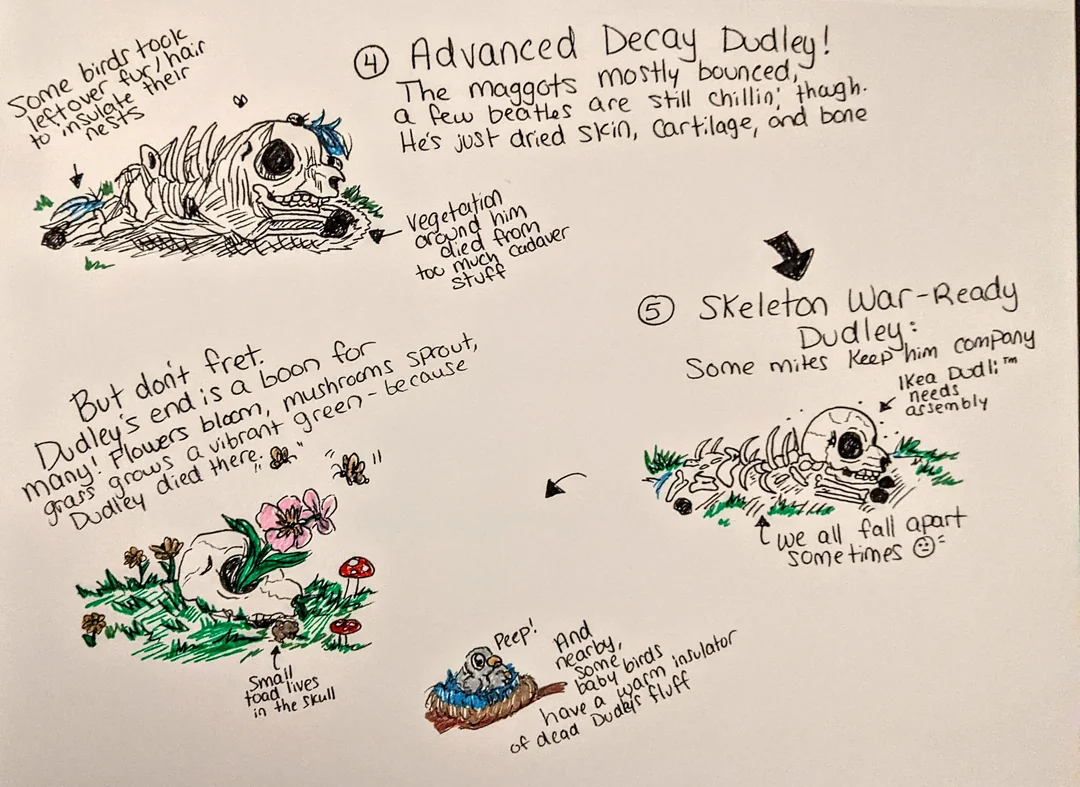 Some birds took
leftover fur/hair
to insulate their
nests
④ Advanced Decay Dudley!
The maggots mostly bounced,
a few beatles are still chillin', though.
He's just dried skin, cartilage, and bone
Vegetation
around him
died from
too much cadaver
stuff
⑤ Skeleton War-Ready
Dudley:
Some mites keep him company
IKea Dudli™
needs
assembly
we all fall apart
sometimes
But don't fret.
Dudley's end is a boon for
many! Flowers bloom, mushrooms sprout,
grass grows a vibrant green-because
Dudley died there.
Small
toad lives
in the skull
Peep!
And
nearby,
some
baby birds
have a warm insulator
of dead Dudley's fluff